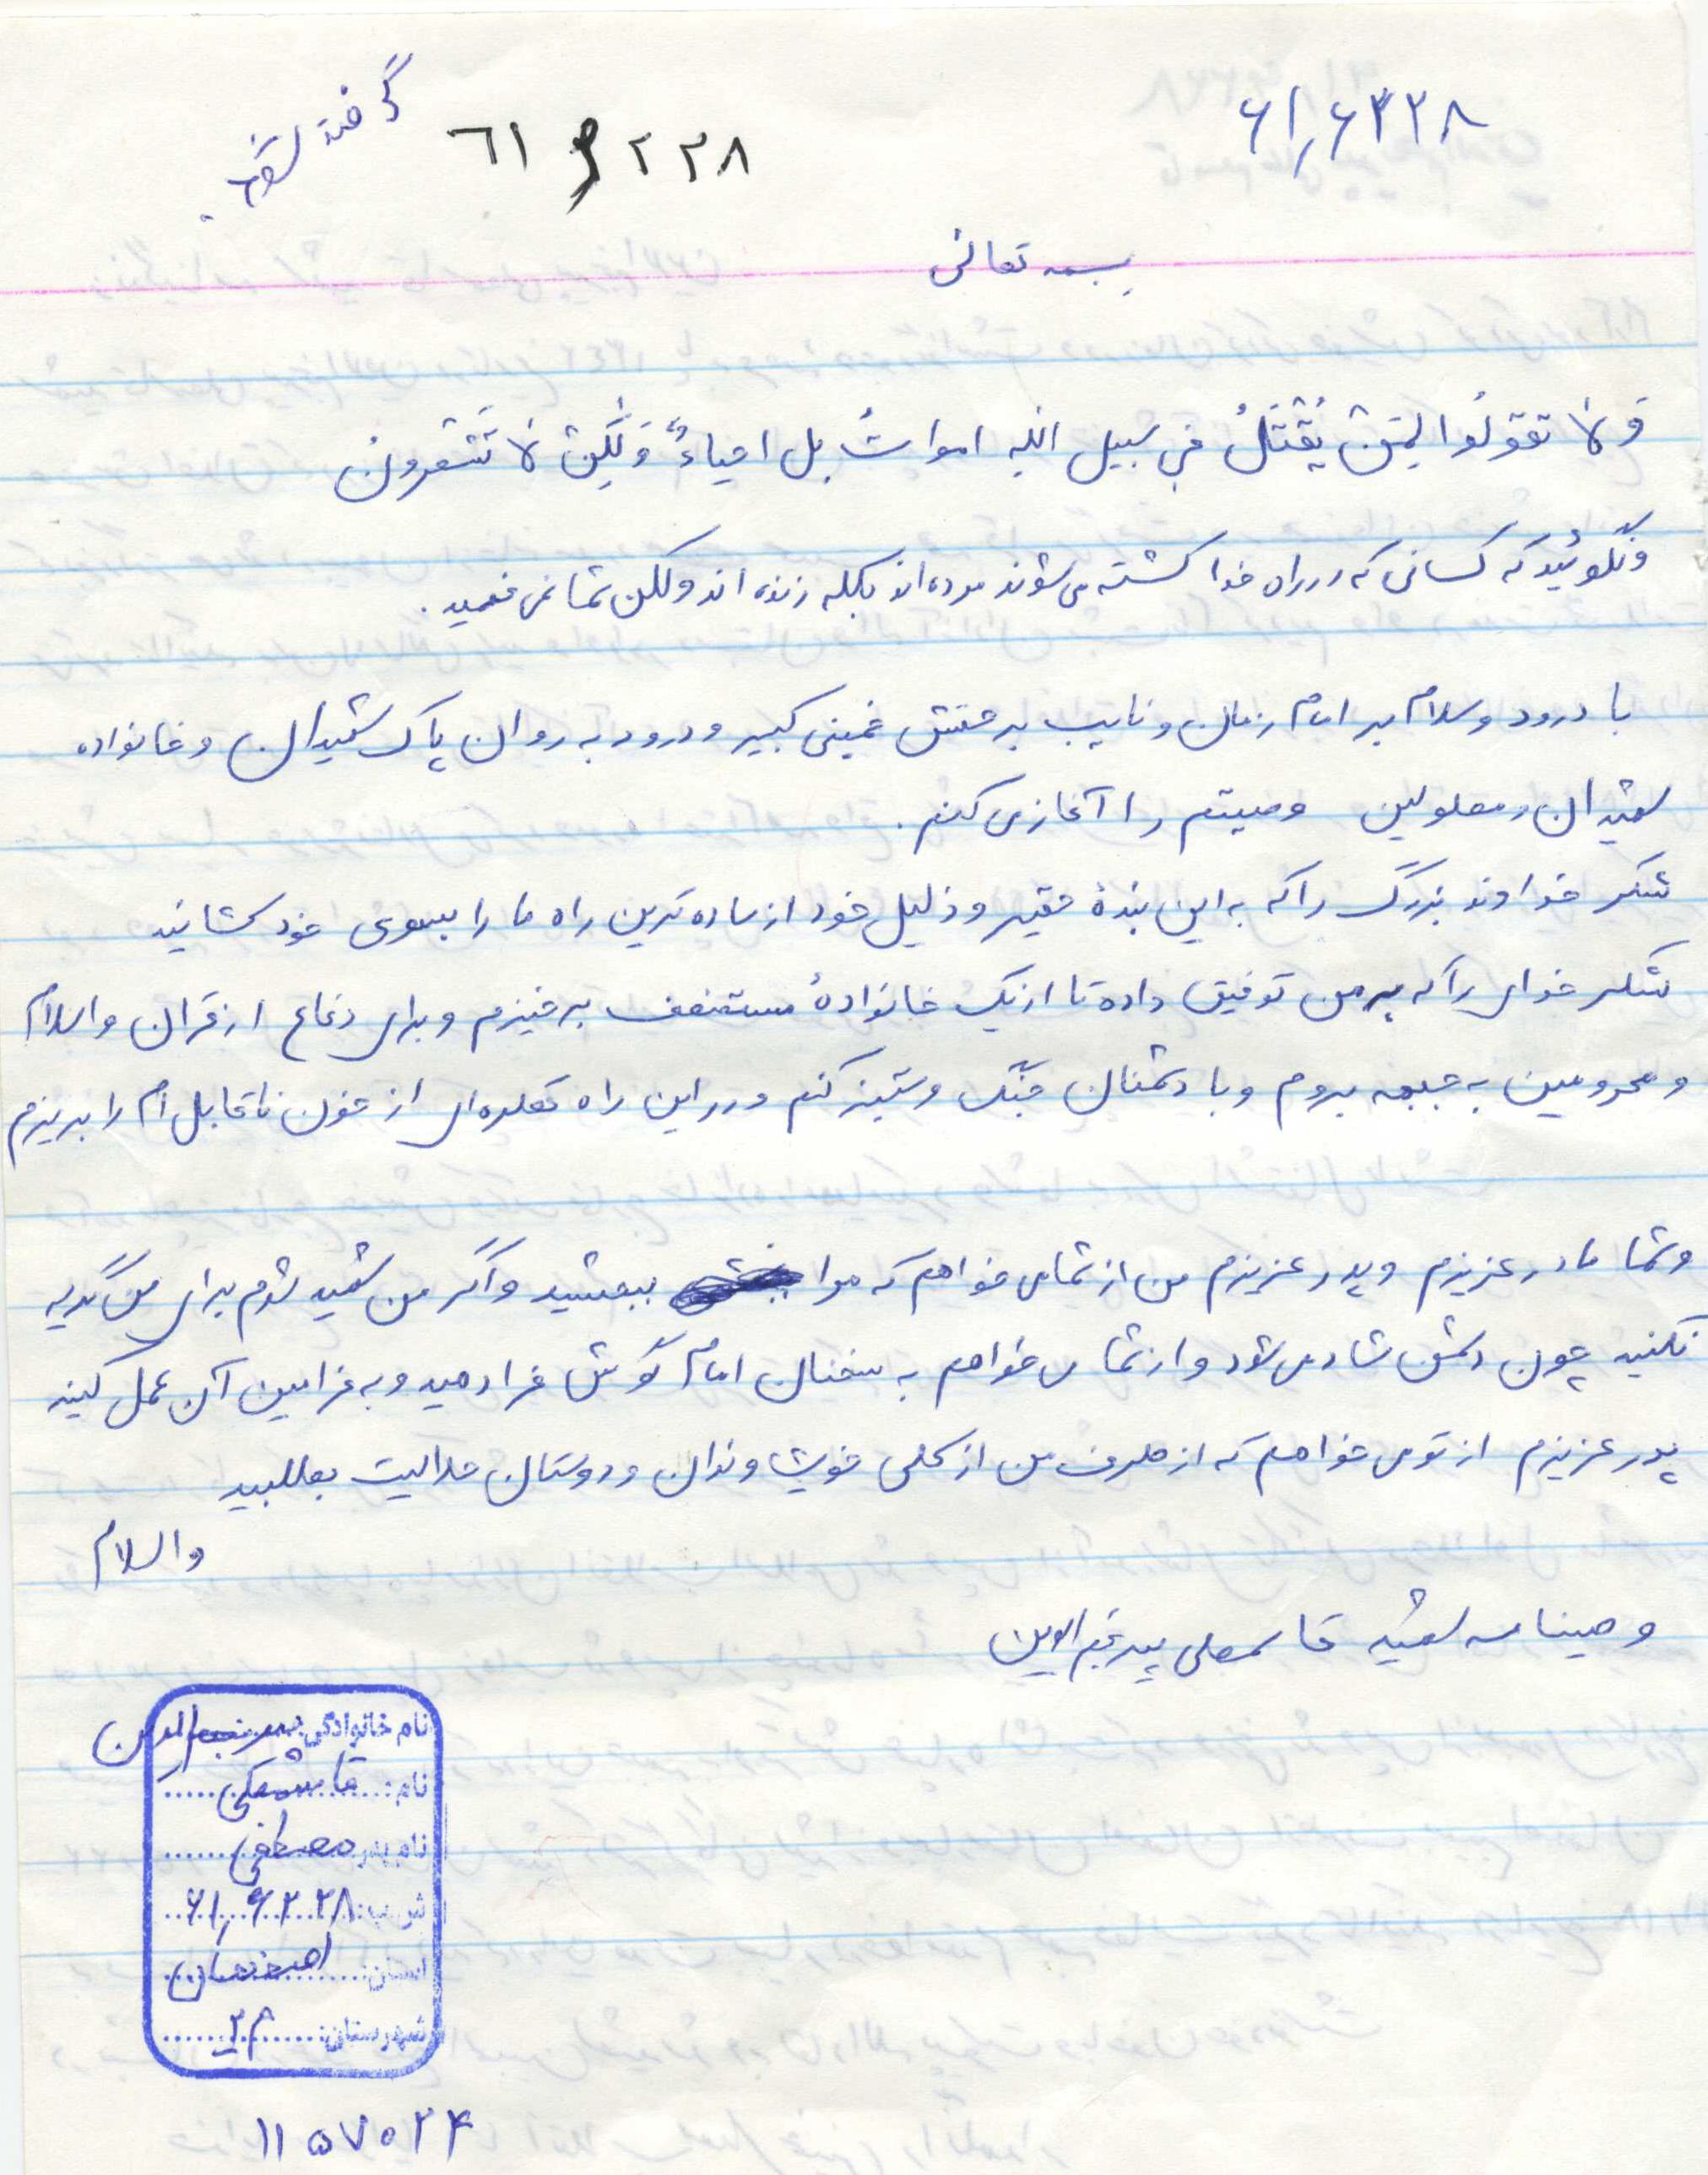 ۶۱٫۶۲۲۸
٦١ ۶ ٢٢٨
گرفته شود.
بسمه تعالی
وَ لا تقولُوا لِمَنْ یُقْتَلُ فی سبیل اللهِ امواتُ بل احیاءٌ وَلٰکِنْ لا تَشْعرونْ
ونگوئید که کسانی که در راه خدا کشته می شوند مرده اند بلکه زنده اند ولکن شما نمی فهمید.
با درود و سلام بر امام زمان و نایب بر حقش خمینی کبیر و درود به روان پاک شهیدان و خانواده
شهیدان و معلولین وصیتم را آغاز می کنم.
شکر خداوند بزرگ را که به این بندهٔ حقیر و ذلیل خود از ساده ترین راه ما را بسوی خود کشانید
شکر خدای را که بر من توفیق داده تا از یک خانوادهٔ مستضعف برخیزم و برای دفاع از قرآن و اسلام
و محرومین به جبهه بروم و با دشمنان جنگ و ستیز کنم و در این راه قطره ای از خون ناقابل ام را بریزم
و شما مادر عزیزم و پدر عزیزم من از شما می خواهم که مرا ببخشید و اگر من شهید شدم برای من گریه
نکنید چون دشمن شاد می شود و از شما می خواهم به سخنان امام گوش فرا دهید و به فرامین آن عمل کنید
پدر عزیزم از تو می خواهم که از طرف من از کلی خویشاوندان و دوستان حلالیت بطلبید
والسلام
وصینامه شهید قاسمعلی پیرنجم الدین
نام خانوادگی: پیرنجم الدین
نام: قاسمعلی
نام پدر: مصطفی
ش ب: ۶۱٫۶۲۲۸
استان: اصفهان
شهرستان:
۱۱۵۷۰۲۴